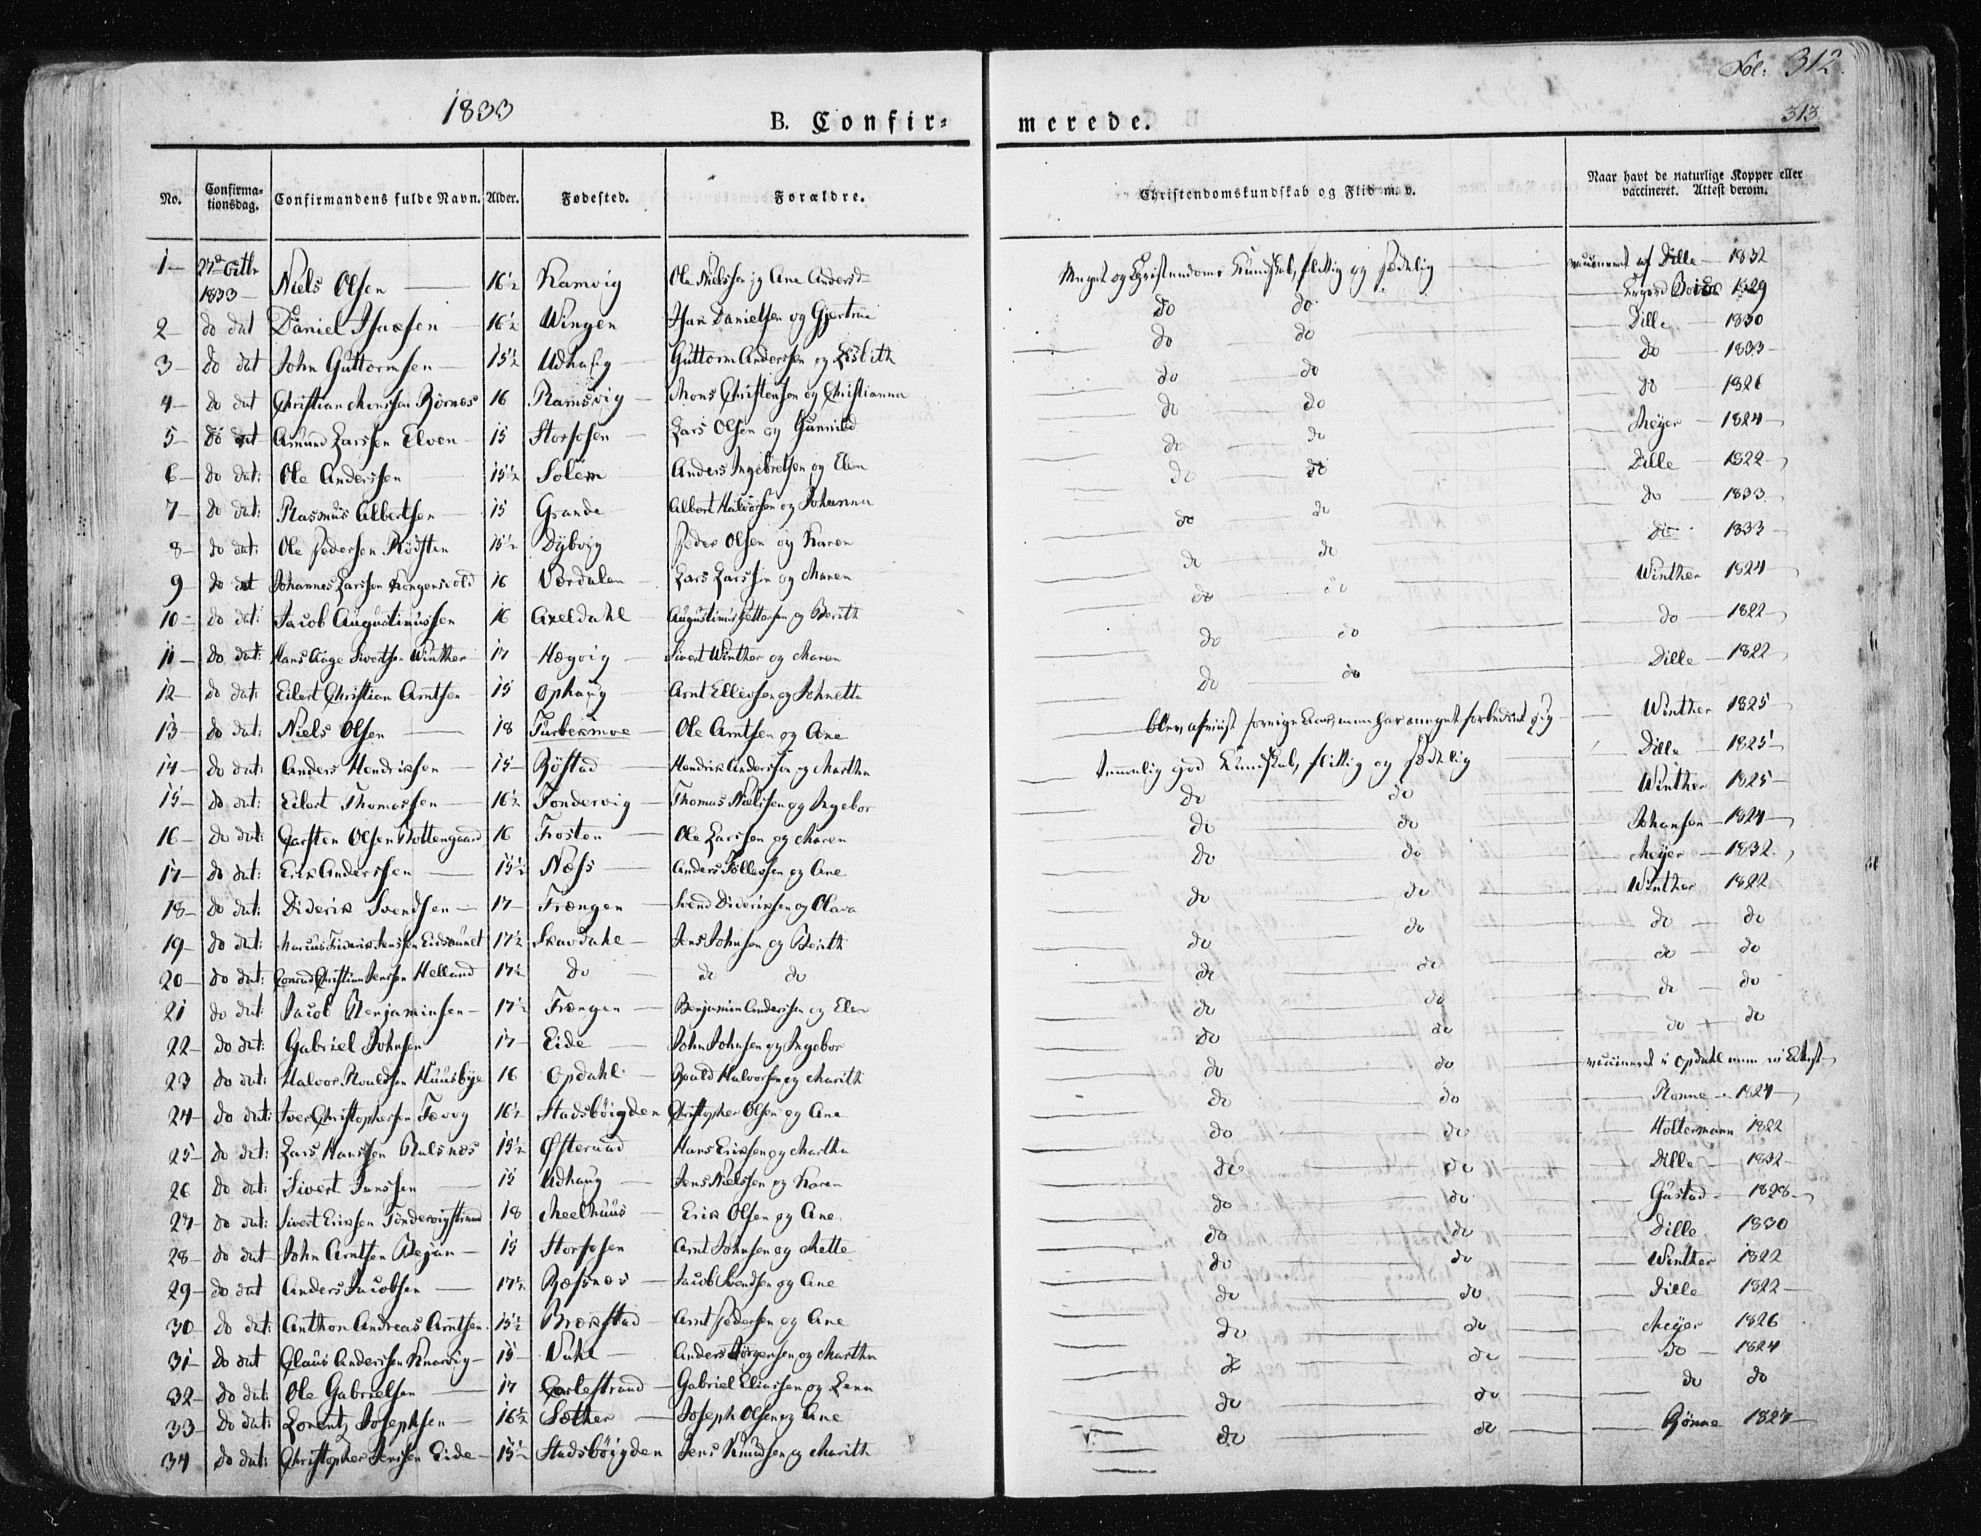 1833
B. Confir-
merede.
Fol: 312.
313
No. Confirma-tionsdag. Confirmandens fulde Navn. Alder. Fødested. Forældre. Christendomskundskab og Flid m. v. Naar havt de naturlige Kopper eller vaccineret. Attest derom.
1 27de Octbr 1833 Niels Olsen 16½ Ramvig Ole Nielssen og Ane Andersd Meget og Christendoms Kundskab, flittig og sædelig vaccineret af Dille 1832
2 do dat Daniel Isacsen 16½ Wingen Isac Danielsen og Gjertrue do do 1829
3 do dat John Guttormsen 15½ Udhaug Guttorm Anderssen og Lisbeth do do Dille 1830
4 do dat Christian Monssen Börnæs 16 Ramsvig Mons Christensen og Christianna do do do 1833
5 do dat Amund Larssen Elven 15 Storfosen Lars Olsen og Gunnild do do do 1826
6 do dat: Ole Anderssen 15½ Solem Anders Ingebretsen og Elen do do Meÿer 1824
7 do dat: Rasmus Albertsen 15 Grande Albert Halvorsen og Johanna do do Dille 1822
8 do dat: Ole Pedersen Rödsten 15½ Dÿbvig Peder Olsen og Karen do do do 1833
9 do dat Johannes Larssen Kongensvold 16 Værdalen Lars Larssen og Maren do do do 1833
10 do dat: Jacob Augustinussen 16 Axeldahl Augustinus Pettersen og Berith do do Winther 1824
11 do dat: Hans Aage Sivertsen Winther 17 Hegvig Sivert Winther og Maren do do do 1822
12 do dat: Eilert Christian Arntsen 15 Ophaug Arnt Ellevsen og Johnetta do do Dille 1822
13 do dat: Niels Olsen 18 Turbekmoe Ole Arntsen og Ane blev afviist forrige Aar, men har meget forbedret sig Winther 1825
14 do dat: Anders Hendriksen 15 Röstad Hendrik Anderssen og Martha temmelig god Kundskab, flittig og sædelig Dille 1825
15 do dat: Eilert Thomassen 16½ Tondervig Thomas Nielssen og Ingebor do do Winther 1825
16 do dat: Carsten Olsen Bottengaard 16 Frosten Ole Larssen og Maren do do Johansen 1824
17 do dat: Erik Anderssen 15½ Næss Anders Tollevsen og Ane do do Meÿer 1832
18 do dat: Diderik Svendsen 17 Trængen Svend Dideriksen og Olava do do Winther 1822
19 do dat: Marcus Fridrik Jenssen Eidsaunet 17½ Skavdahl Jens Johnsen og Berith do do do do
20 do dat: Conrad Christian Jenssen Helland 17½ do do do do do do do
21 do dat: Jacob Benjaminsen 17½ Trængen Benjamin Anderssen og Elen do do do do
22 do dat: Gabriel Johnsen 17 Eide John Johnsen og Ingebor do do do do
23 do dat: Halvor Roaldsen Huusbÿe 16 Opdahl Roald Halvorsen og Marith do do vaccineret i Opdahl
24 do dat: Iver Christophersen Tævog 16½ Stadsböigden Christopher Olsen og Ane do do Rönne 1824
25 do dat: Lars Hanssen Rulsnæs 15½ Østeraad Hans Eriksen og Martha do do Holtermann 1822
26 do dat: Sivert Jenssen 15 Udhaug Jens Nielssen og Karen do do Dille 1832
27 do dat: Sivert Eriksen Tondervigstrand 18 Meelhuus Erik Olsen og Ane do do Gustad 1828
28 do dat John Arntsen Began 15 Storfosen Arnt Johnsen og Mette do do Dille 1830
29 do dat Anders Jacobsen 17½ Ræfsnæs Jacob Svendsen og Ane do do Winther 1822
30 do dat: Anthon Andreas Arntsen 15½ Brækstad Arnt Pedersen og Ane do do Dille 1822
31 do dat Claus Anderssen Knarvig 15 Anders Jörgensen og Martha do do Meÿer 1826
32 do dat: Ole Gabrielsen 17 Gartestrand Gabriel Eliassen og Lena do do do 1824
33 do dat: Lorentz Josephsen 16½ Sæther Joseph Olsen og Ane do do do do
34 do dat: Christopher Jenssen Eide 15½ Stadsböigden Jens Knudsen og Marith do do Rönne 1827